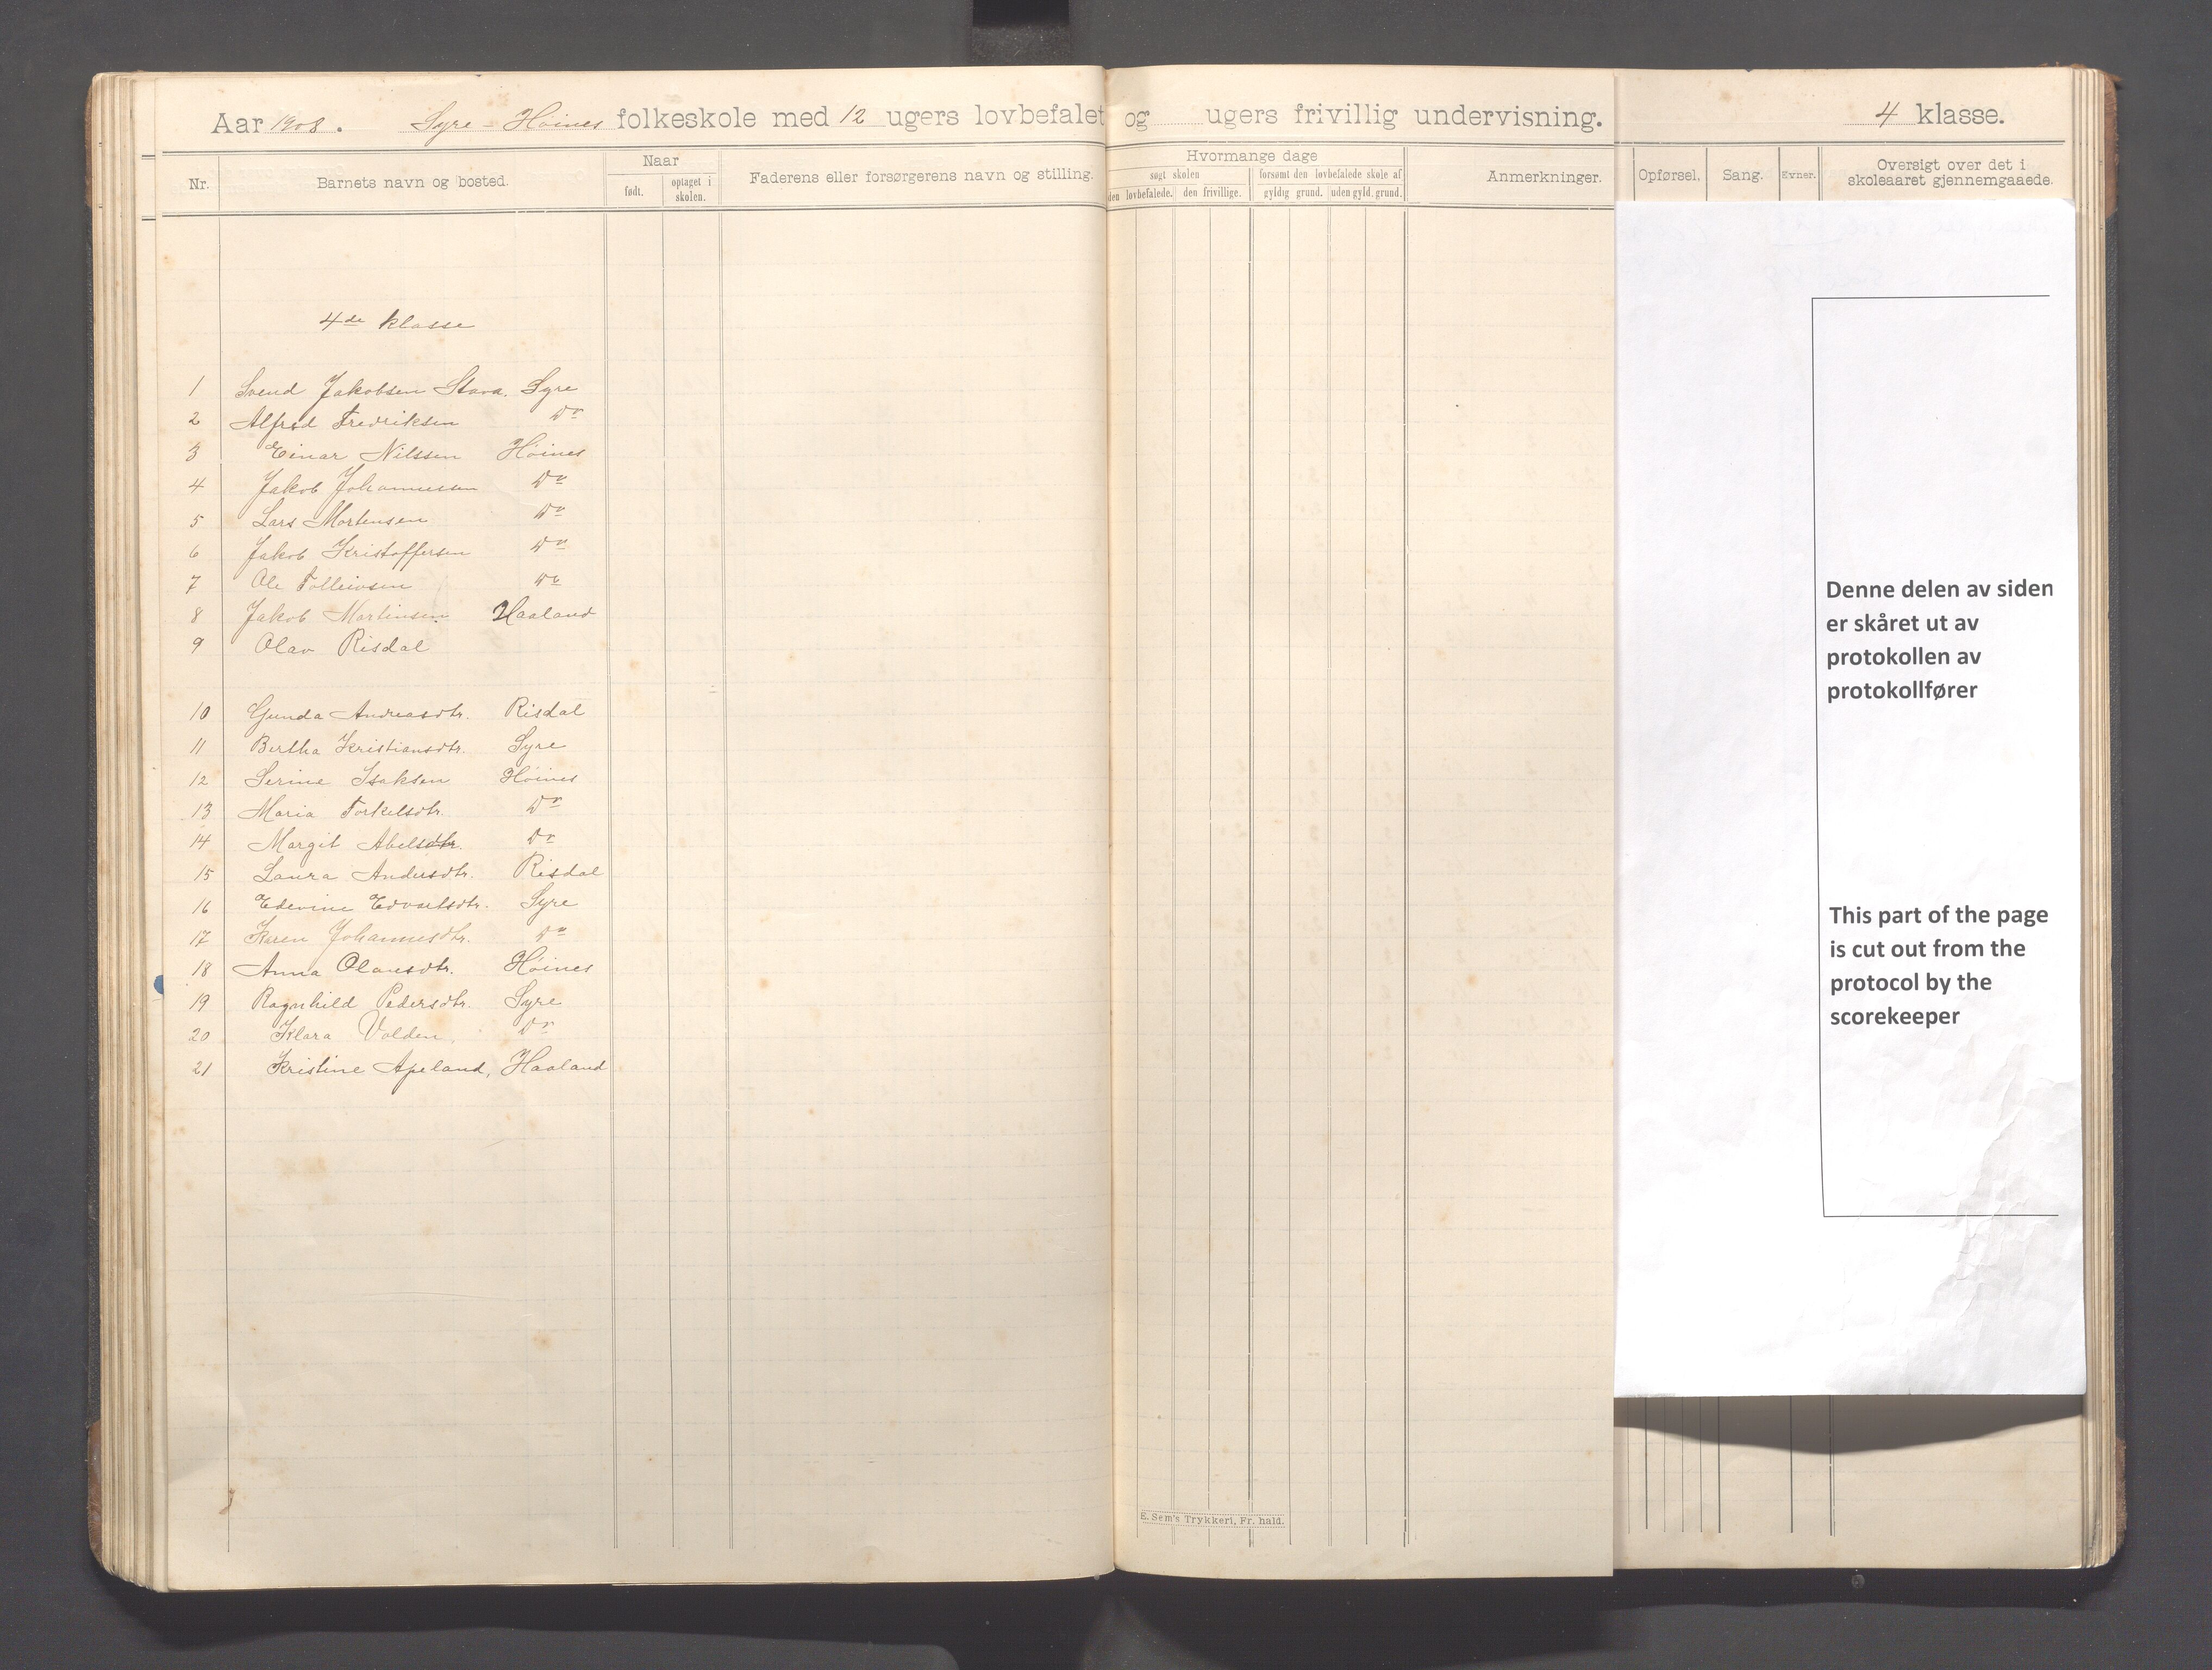 Aar 1908. Syre - Høines folkeskole med 12 ugers lovbefalet og ugers frivillig undervisning. 4 klasse.
Nr. Barnets navn og bosted. Naar født. optaget i skolen. Faderens eller forsørgerens navn og stilling. Hvormange dage søgt skolen den lovbefalede. den frivillige. forsømt den lovbefalede skole af gyldig grund. uden gyld. grund. Anmerkninger. Opførsel. Sang. Evner. Oversigt over det i skoleaaret gjennemgaaede.
4de klasse
1 Svend Jakobsen Stava. Syre
2 Alfred Fredriksen Do
3 Einar Nilssen Høines
4 Jakob Johannessen Do
5 Lars Mortensen Do
6 Jakob Kristoffersen Do
7 Ole Tolleivsen Do
8 Jakob Martinsen. Haaland
9 Olav Risdal
10 Gunda Andreasdtr. Risdal
11 Bertha Kristiansdtr. Syre
12 Serine Isaksen Høines
13 Maria Torkelsdtr. Do
14 Margit Abelsdtr. Do
15 Laura Andersdtr. Risdal
16 Edevine Edvartsdtr. Syre
17 Karen Johannesdtr. Do
18 Anna Olausdtr. Høines
19 Ragnhild Pedersdtr. Syre
20 Klara Volden. Do
21 Kristine Apeland, Haaland
E. Sem's Trykkeri, Fr. hald.
Denne delen av siden
er skåret ut av
protokollen av
protokollfører
This part of the page
is cut out from the
protocol by the
scorekeeper